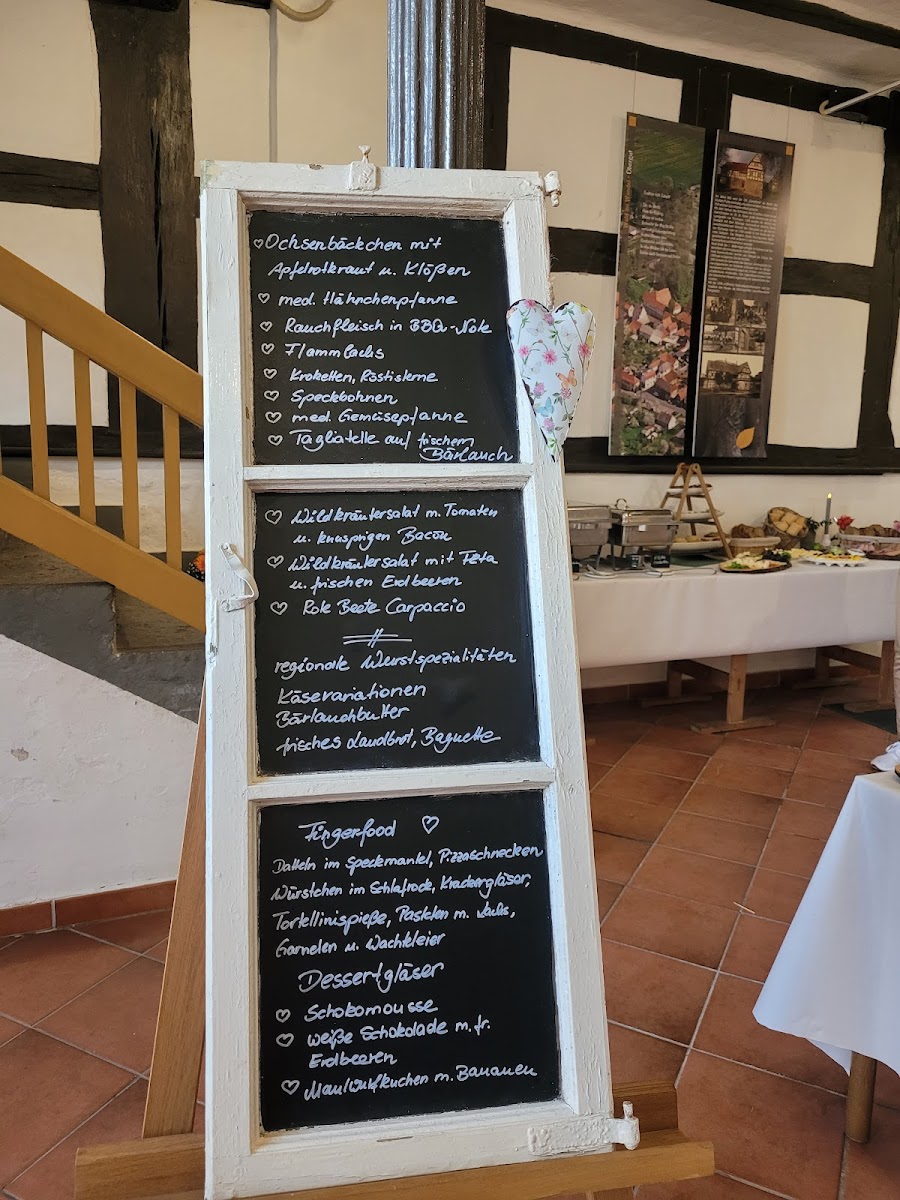 ♡ Ochsenbäckchen mit
Apfelrotkraut u. Klößen
♡ med. Hähnchenpfanne
♡ Rauchfleisch in BBQ-Note
♡ Flammlachs
♡ Kroketten, Röstisterne
♡ Speckbohnen
♡ med. Gemüsepfanne
♡ Tagliatelle auf frischem
Bärlauch
♡ Wildkräutersalat m. Tomaten
u. knusprigen Bacon
♡ Wildkräutersalat mit Feta
u. frischen Erdbeeren
♡ Rote Beete Carpaccio
regionale Wurstspezialitäten
Käsevariationen
Bärlauchbutter
frisches Landbrot, Baguette
Fingerfood ♡
Datteln im Speckmantel, Pizzaschnecken
Würstchen im Schlafrock, Krackergläser,
Tortellinispieße, Pasteten m. Lachs,
Garnelen u. Wachteleier
Dessertgläser
♡ Schokomousse
♡ weiße Schokolade m. fr.
Erdbeeren
♡ Maulwurfkuchen m. Bananen